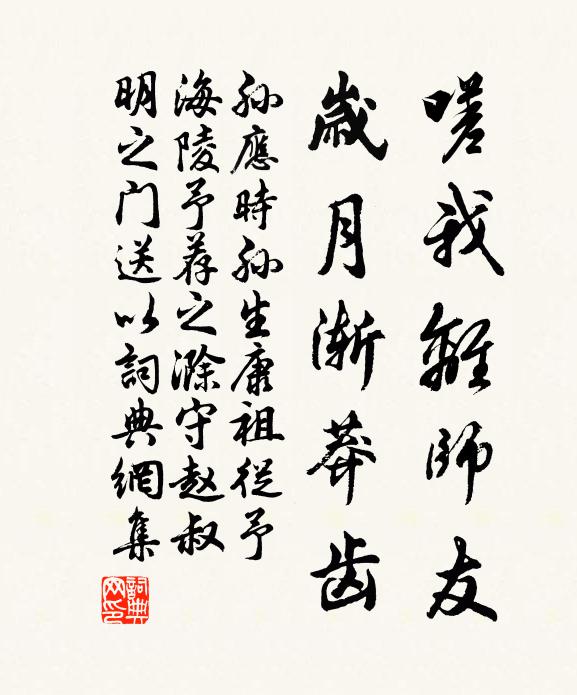 嗟我離師友
歲月漸莽齿
孙應時孙生康祖從予
海陵予荐之滁守赵叔
明之门送以詞典網集
詞典網印